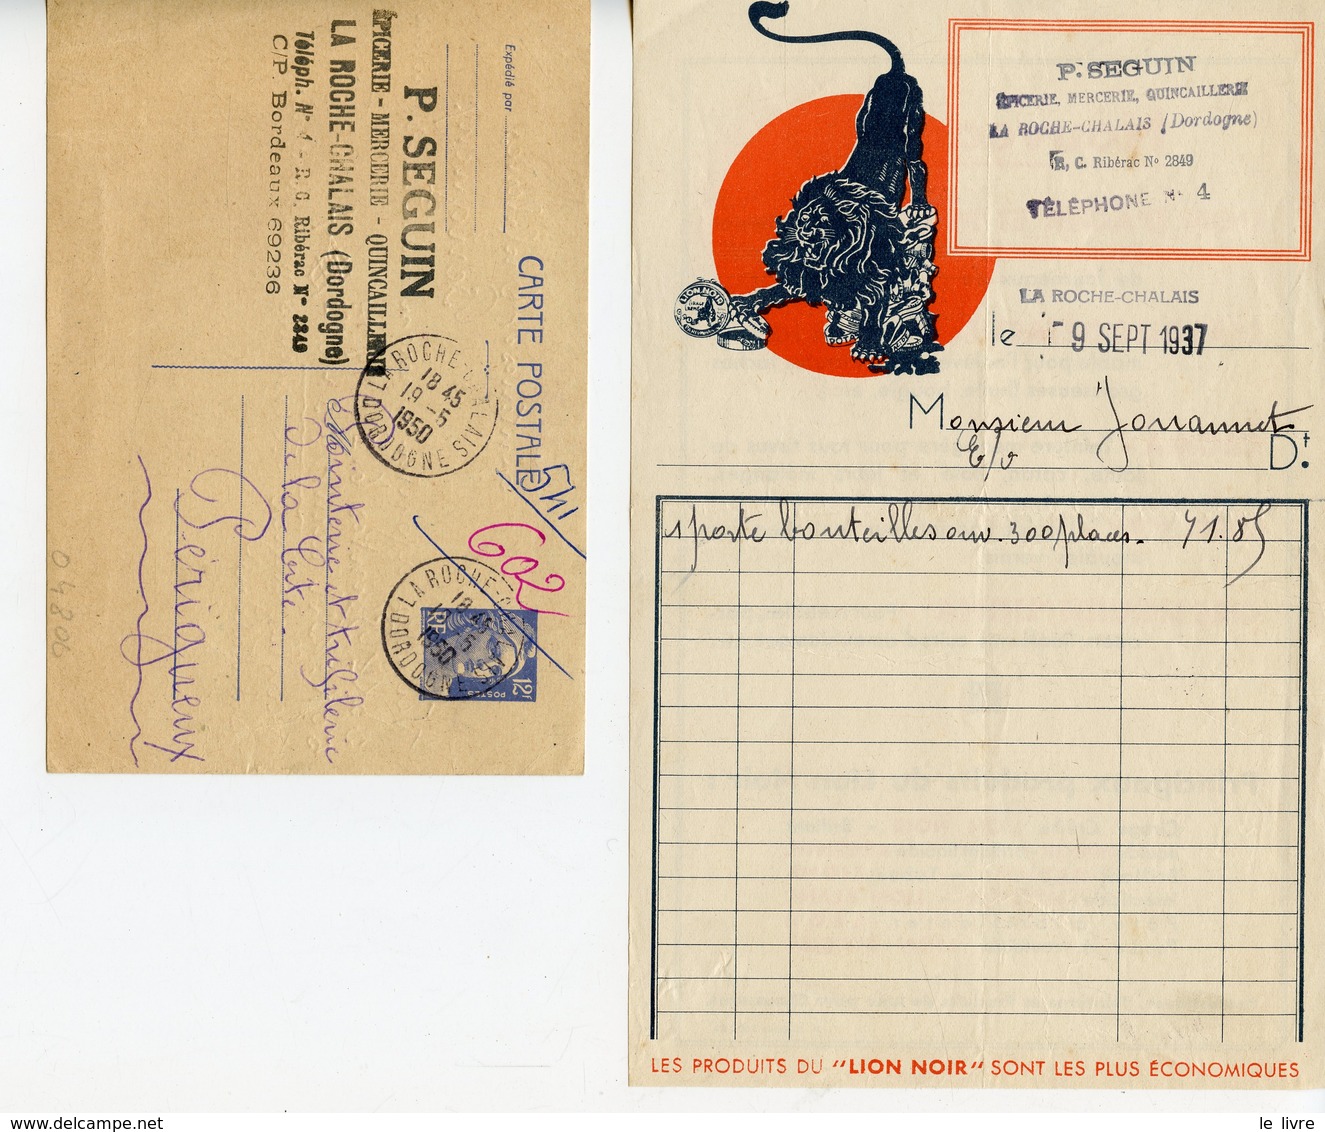 Expédié par
P. SEGUIN
EPICERIE - MERCERIE - QUINCAILLERIE
LA ROCHE-CHALAIS (Dordogne)
Téléph. N° 4 - R. C. Ribérac N° 2849
C/P. Bordeaux 69236
CARTE POSTALE
541
602
LA ROCHE-CHALAIS
18 45
19 - 5
1950
DORDOGNE
LA ROCHE-C
18 45
19 - 5
1950
DORDOGNE
RF
POSTES
12F
de la Cité
Périgueux
04806
P. SEGUIN
EPICERIE, MERCERIE, QUINCAILLERIE
LA ROCHE-CHALAIS (Dordogne)
R. C. Ribérac N° 2849
TÉLÉPHONE N° 4
LION NOIR
LA ROCHE-CHALAIS
le - 9 SEPT 1937
Monsieur Jouannet
E/v Dt.
1 porte bouteilles 300 places. 71.85
LES PRODUITS DU "LION NOIR" SONT LES PLUS ÉCONOMIQUES
le livre